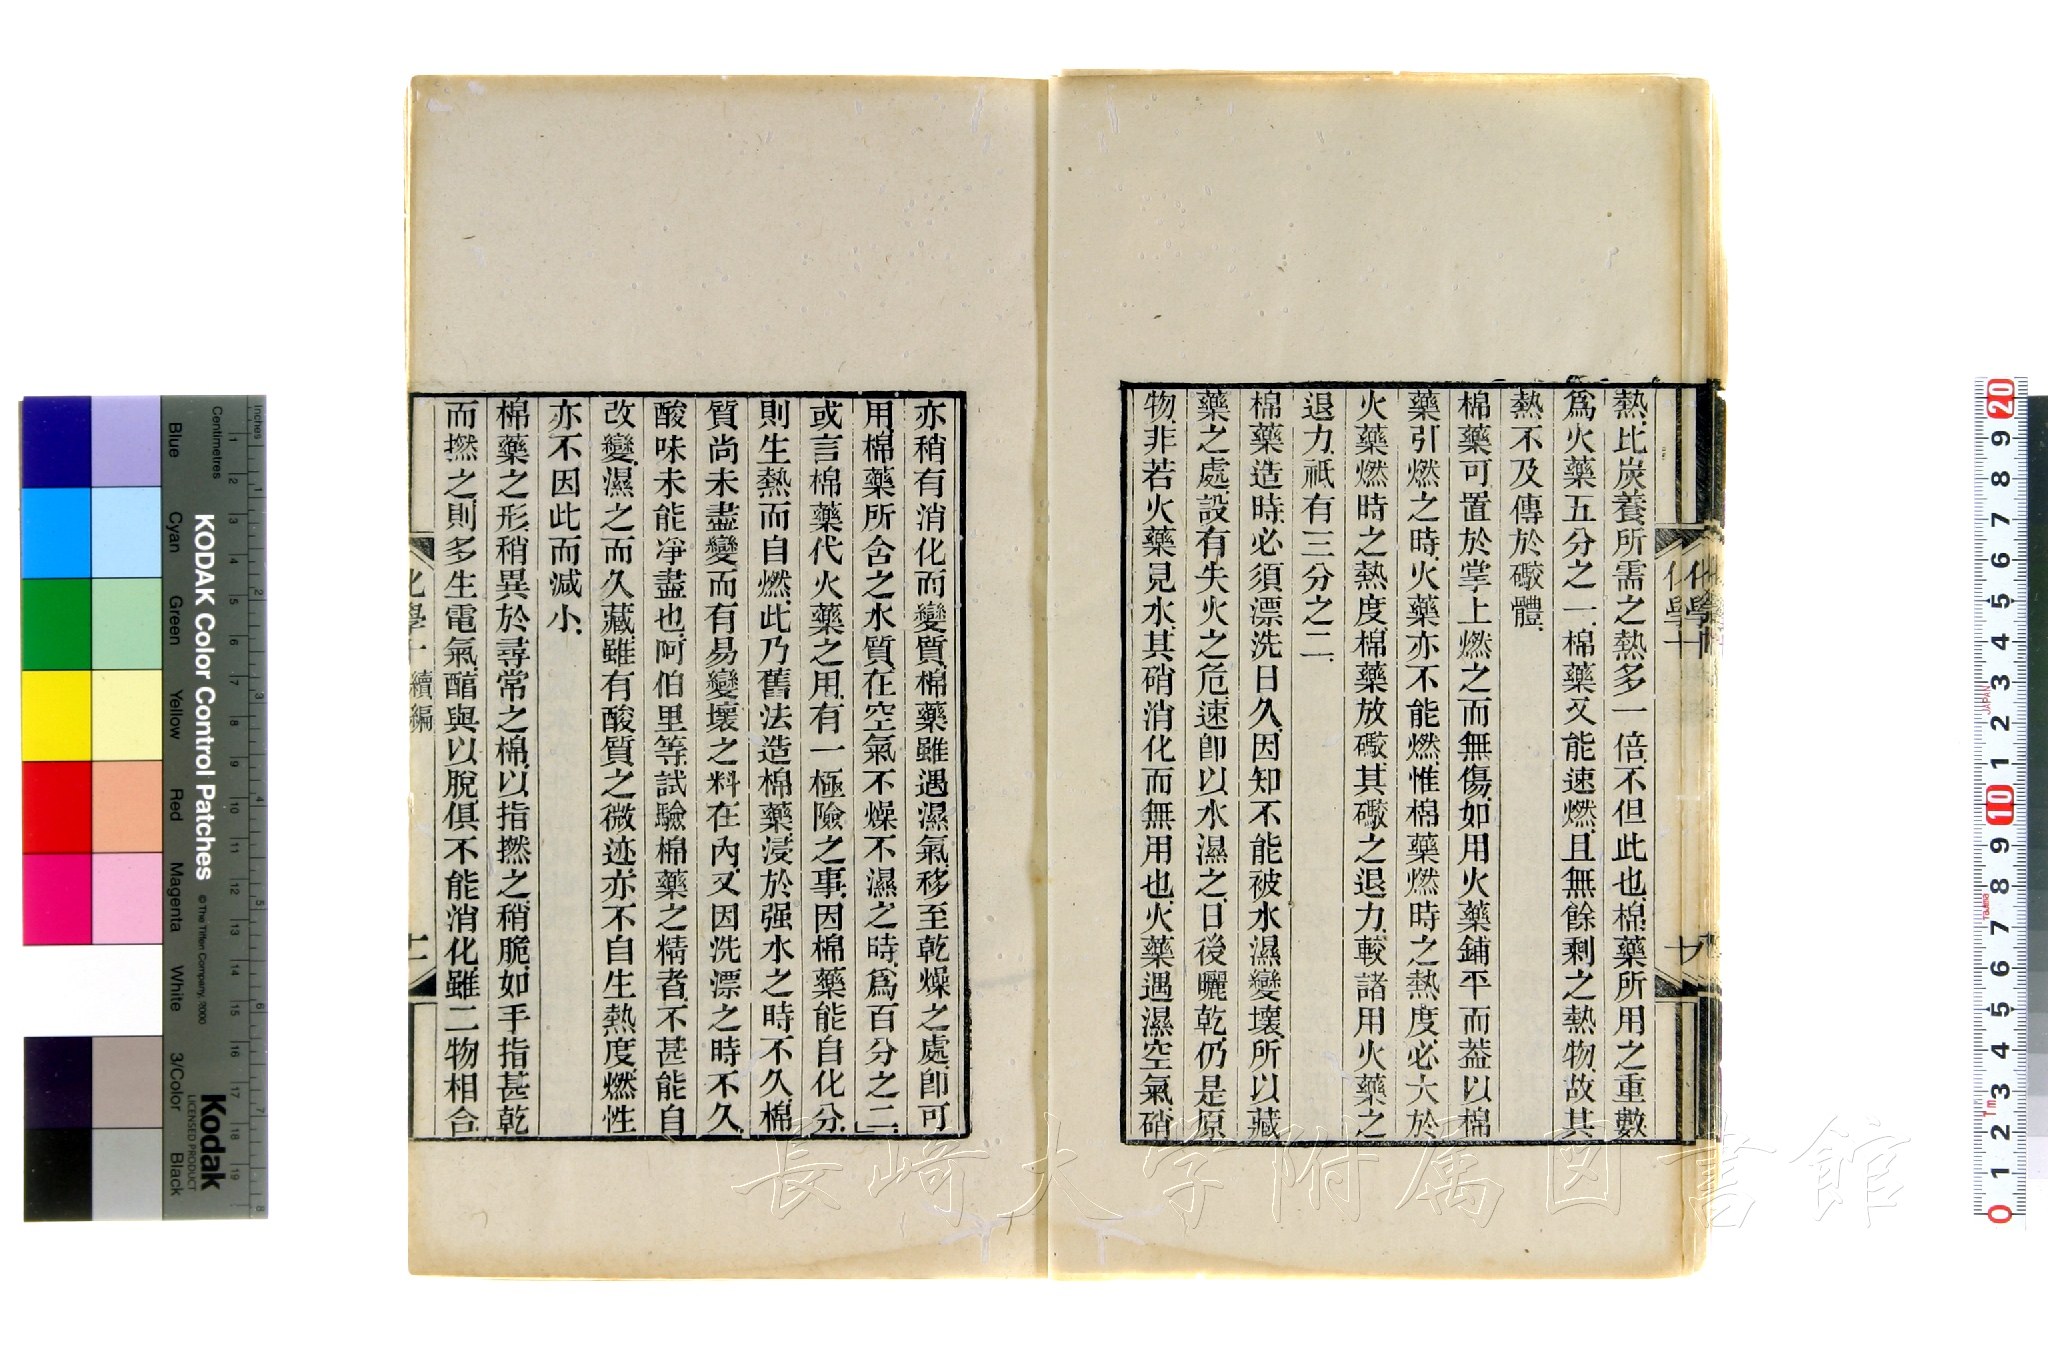 熱、比炭養所需之熱多一倍、不但此也、棉藥所用之重數
爲火藥五分之一、棉藥又能速燃、且無餘剩之熱物、故其
熱不及傳於礮體、
棉藥可置於掌上燃之而無傷、如用火藥鋪平而葢以棉
藥引燃之時、火藥亦不能燃、惟棉藥燃時之熱度、必大於
火藥燃時之熱度、棉藥放礮、其礮之退力、較諸用火藥之
退力、祗有三分之二、
棉藥造時、必須漂洗日久、因知不能被水濕變壞、所以藏
藥之處、設有失火之危、速卽以水濕之、日後曬乾、仍是原
物、非若火藥見水、其硝消化而無用也、火藥遇濕空氣、硝
亦稍有消化而變質、棉藥雖遇濕氣、移至乾燥之處、卽可
用、棉藥所含之水質、在空氣不燥不濕之時、爲百分之二、
或言棉藥代火藥之用、有一極險之事、因棉藥能自化分、
則生熱而自燃、此乃舊法造棉藥、浸於强水之時不久、棉
質尚未盡變、而有易變壞之料在內、又因洗漂之時不久、
酸味未能淨盡也、阿伯里等、試驗棉藥之精者、不甚能自
改變、濕之而久藏、雖有酸質之微迹、亦不自生熱度、燃性
亦不因此而減小、
棉藥之形、稍異於尋常之棉、以指撚之稍脆、如手指甚乾
而撚之、則多生電氣、醕與以脫、俱不能消化、雖二物相合
化學十 續編
化學十
長崎大学附属図書館
KODAK Color Control Patches
© The Tiffen Company, 2000
Kodak
LICENSED PRODUCT
Inches
Centimetres
1 2 3 4 5 6 7 8
1 2 3 4 5 6 7 8 9 10 11 12 13 14 15 16 17 18 19
Blue
Cyan
Green
Yellow
Red
Magenta
White
3/Color
Black
20 9 8 7 6 5 4 3 2 1 10 9 8 7 6 5 4 3 2 1 0
JAPAN